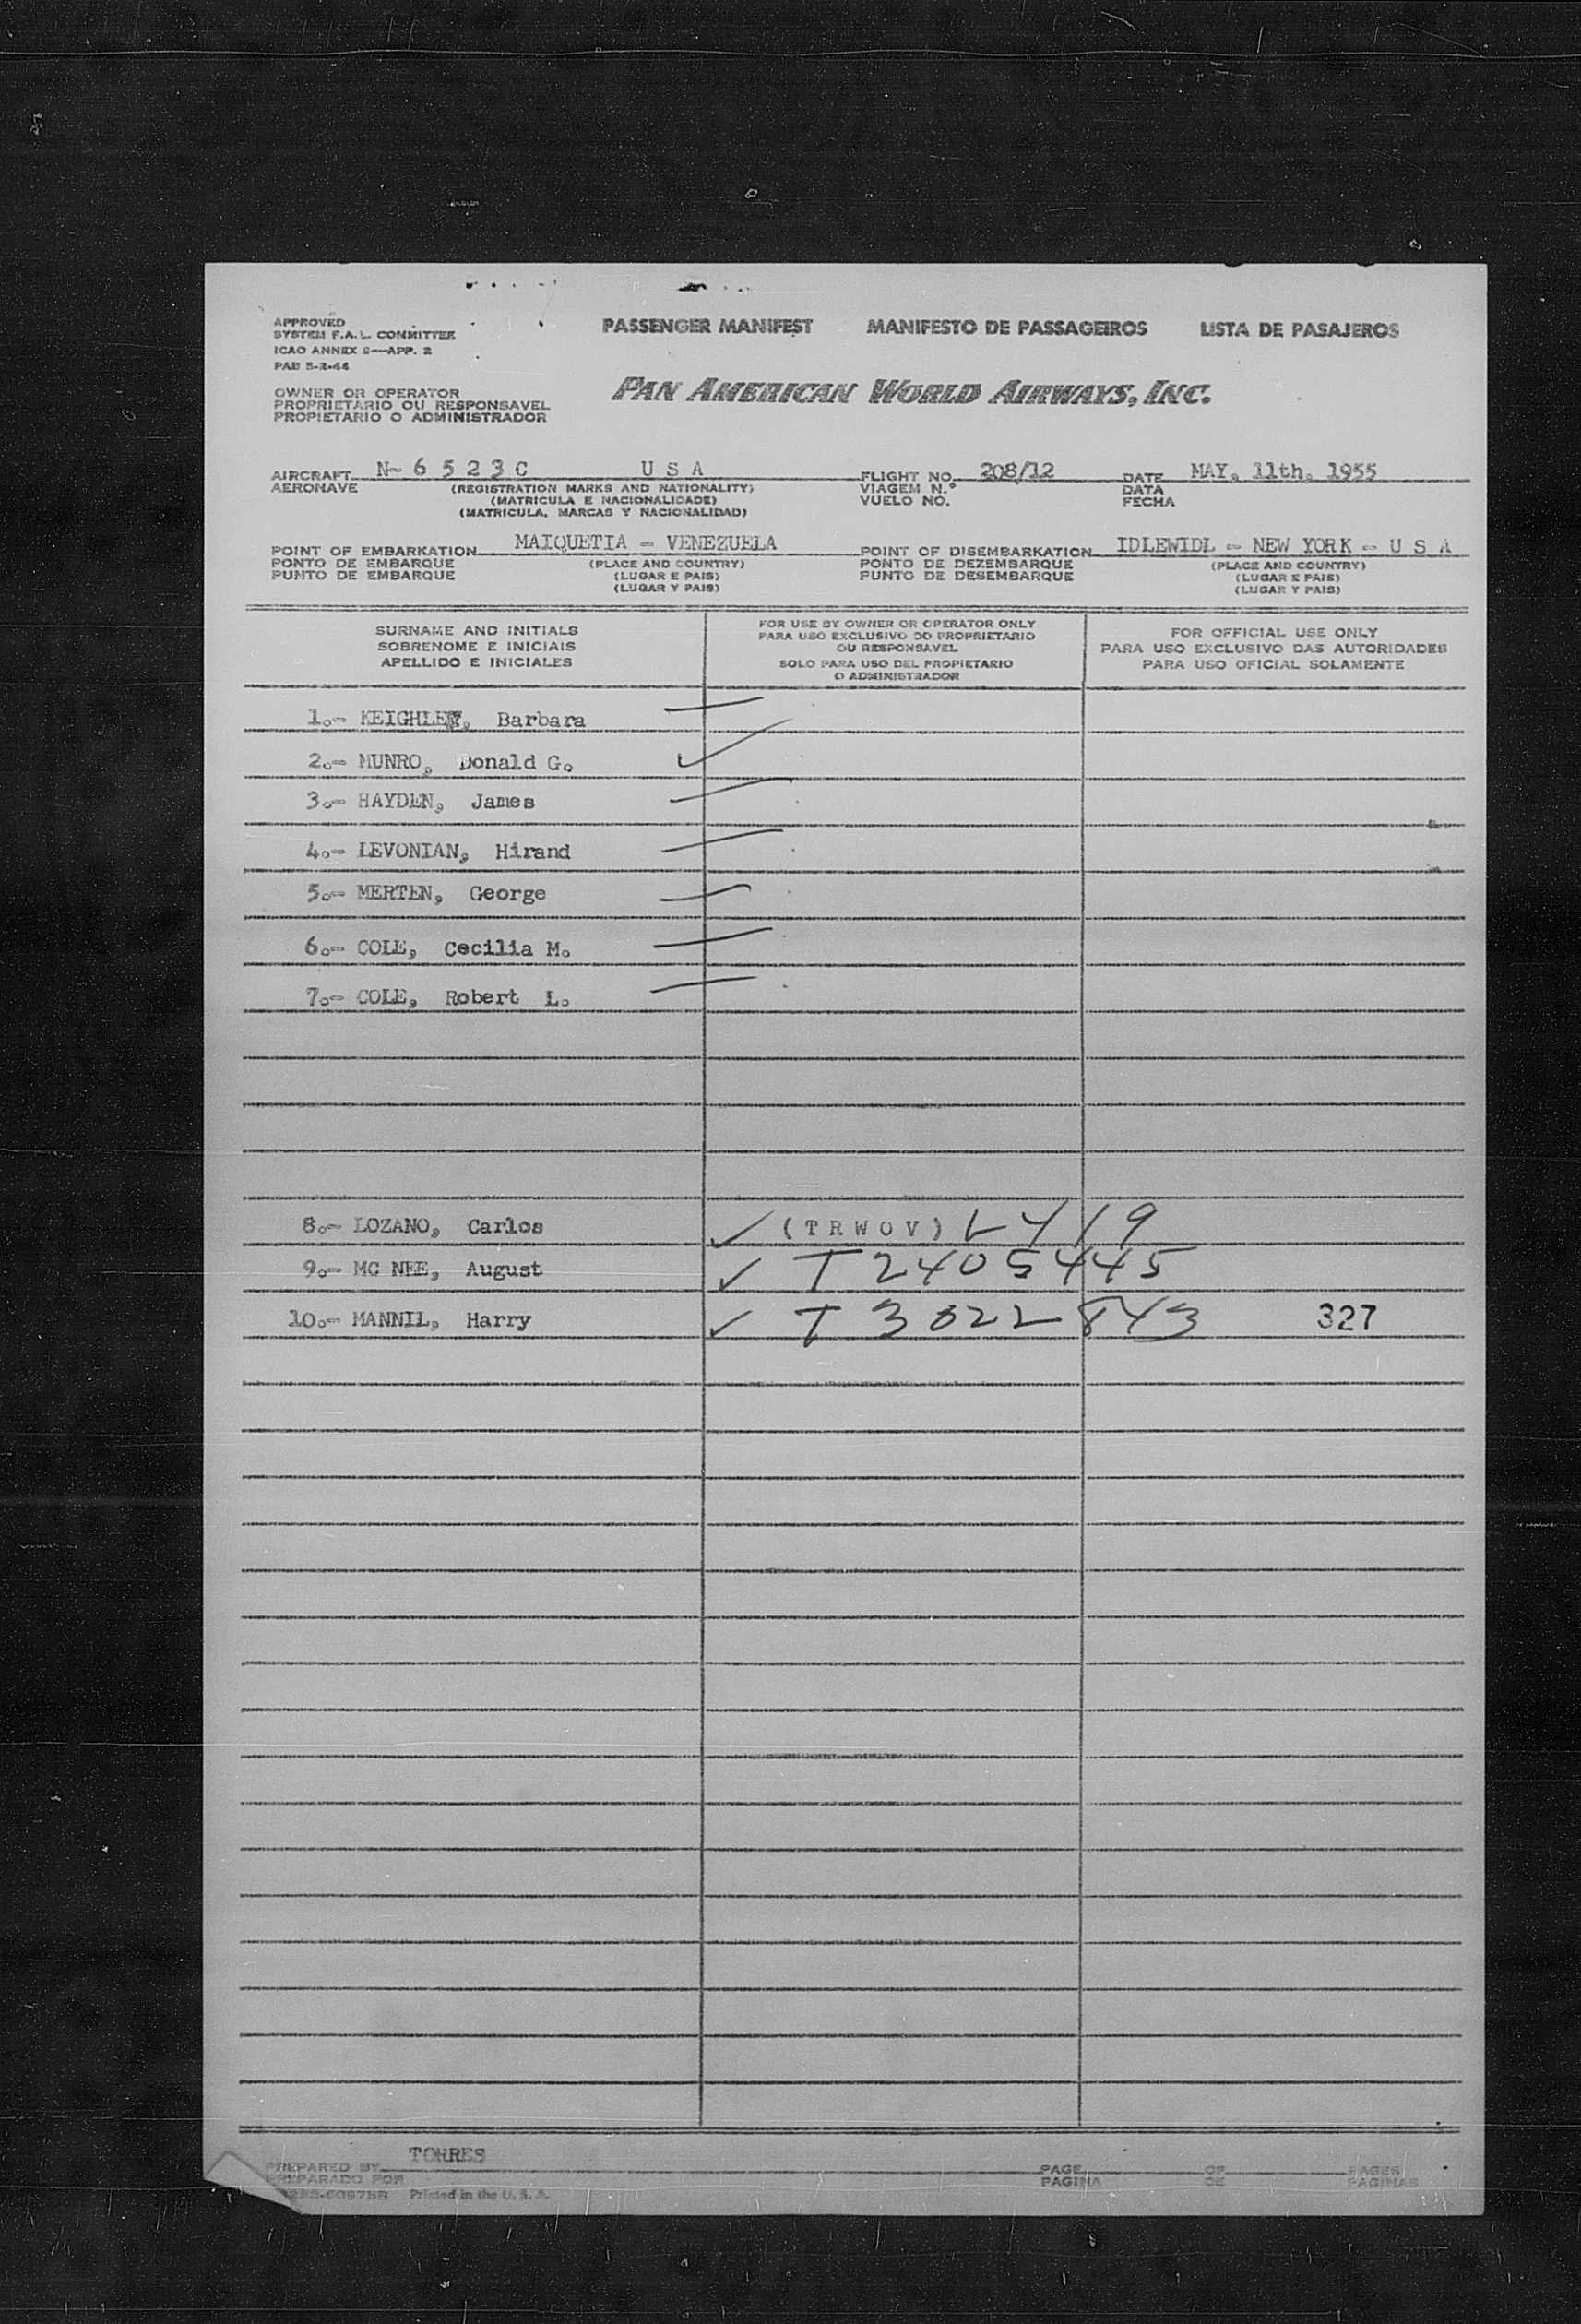 APPROVED
SYSTEM F.A.L. COMMITTEE
ICAO ANNEX 9—APP. 2
PAB 5-2-44
PASSENGER MANIFEST MANIFESTO DE PASSAGEIROS LISTA DE PASAJEROS
OWNER OR OPERATOR
PROPRIETARIO OU RESPONSAVEL
PROPIETARIO O ADMINISTRADOR
PAN AMERICAN WORLD AIRWAYS, INC.
AIRCRAFT N- 6 5 2 3 C U S A FLIGHT NO. 208/12 DATE MAY, 11th, 1955
AERONAVE (REGISTRATION MARKS AND NATIONALITY) VIAGEM N.° DATA
(MATRICULA E NACIONALIDADE) VUELO NO. FECHA
(MATRICULA, MARCAS Y NACIONALIDAD)
POINT OF EMBARKATION MAIQUETIA - VENEZUELA POINT OF DISEMBARKATION IDLEWIDL - NEW YORK - U S A
PONTO DE EMBARQUE (PLACE AND COUNTRY) PONTO DE DEZEMBARQUE (PLACE AND COUNTRY)
PUNTO DE EMBARQUE (LUGAR E PAIS) PUNTO DE DESEMBARQUE (LUGAR E PAIS)
(LUGAR Y PAIS) (LUGAR Y PAIS)
SURNAME AND INITIALS
SOBRENOME E INICIAIS
APELLIDO E INICIALES
FOR USE BY OWNER OR OPERATOR ONLY
PARA USO EXCLUSIVO DO PROPRIETARIO
OU RESPONSAVEL
SOLO PARA USO DEL PROPIETARIO
O ADMINISTRADOR
FOR OFFICIAL USE ONLY
PARA USO EXCLUSIVO DAS AUTORIDADES
PARA USO OFICIAL SOLAMENTE
1.- KEIGHLEY, Barbara
2.- MUNRO, Donald G.
3.- HAYDEN, James
4.- LEVONIAN, Hirand
5.- MERTEN, George
6.- COLE, Cecilia M.
7.- COLE, Robert L.
8.- LOZANO, Carlos ✓ (T R W O V)
9.- MC NEE, August ✓ T 2405445
10.- MANNIL, Harry ✓ T 3022843 327
PREPARED BY TORRES PAGE OF PAGES
PREPARADO POR PAGINA DE PAGINAS
Printed in the U. S. A.